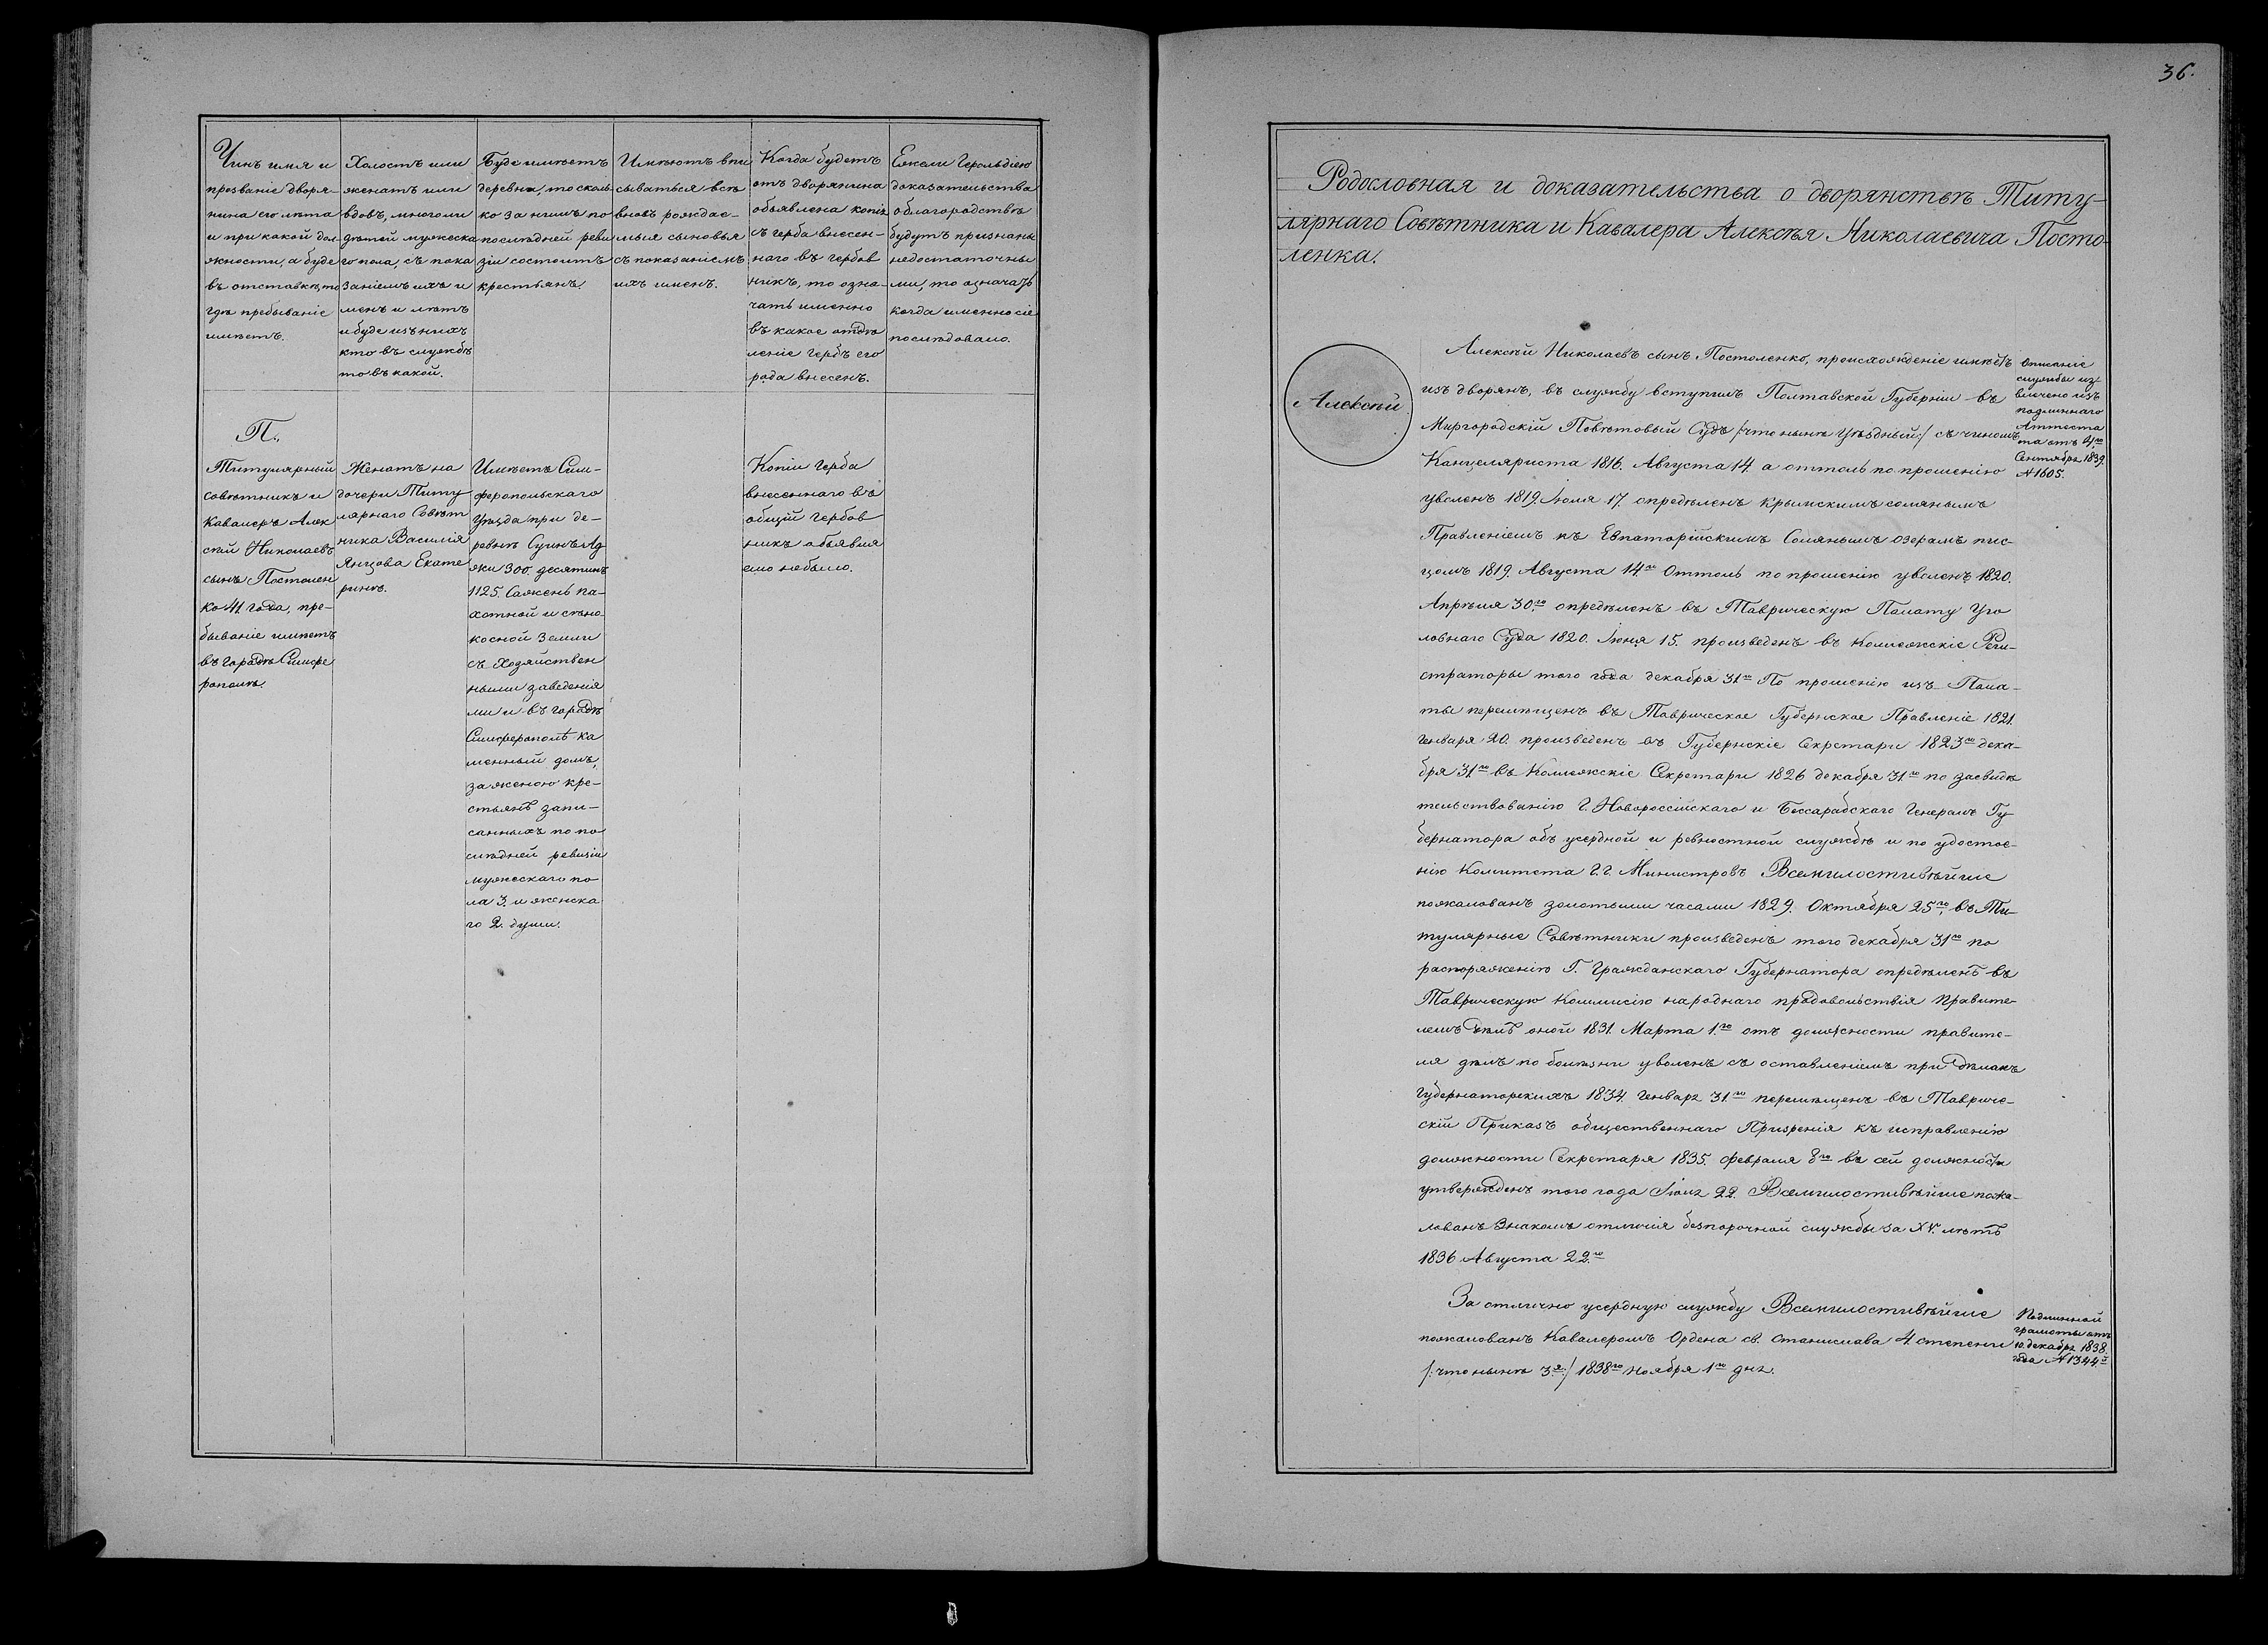 Чинъ имя и
прозваніе дворя-
нина его лѣта
и при какой дол-
жности, а буде
въ отставкѣ, то
гдѣ пребываніе
имѣетъ.
Холостъ или
женатъ или
вдовъ, много ли
дѣтей мужеска
го пола, съ пока
заніемъ ихъ и
менъ и лѣтъ
и буде изъ нихъ
кто въ службѣ
то въ какой.
Буде имѣетъ
деревни, то сколь
ко за нимъ по
послѣдней реви
зіи состоитъ
крестьянъ.
Имѣютъ впи
сываться всѣ
вновь рождае-
мыя сыновья
съ показаніемъ
ихъ именъ.
Когда будетъ
отъ дворянина
объявлена копія
съ герба внесен-
наго въ гербов
никъ, то озна-
чать именно
въ какое отдѣ
леніе гербъ его
рода внесенъ.
Ежели Герольдіею
доказательства
о благородствѣ
будутъ признаны
недостаточны
ми, то означать
когда именно сіе
послѣдовало.
П.
Титулярный
совѣтникъ и
Кавалеръ Алек
сѣй Николаевъ
сынъ Постолен
ко 41 года, пре-
бываніе имѣетъ
въ городѣ Симфе
рополѣ.
Женатъ на
дочери Титу
лярнаго Совѣт
ника Василія
Янцова Екате
ринѣ.
Имѣетъ Сим-
феропольскаго
Уѣзда при де-
ревнѣ Суинъ Ад
жи 300. десятинъ
1125. Сажень па-
хотной и сѣно
косной земли
съ хозяйствен
ными заведенія
ми и въ городѣ
Симферополѣ ка
менный домъ,
за женою кре-
стьянъ запи-
санныхъ по по
слѣдней ревизіи
мужескаго по
ла 3. и женска
го 2. души.
Копіи герба
внесеннаго въ
общій гербов
никъ объявля
емо небыло.
36.
Родословная и доказательства о дворянствѣ Титу-
лярнаго Совѣтника и Кавалера Алексѣя Николаевича Посто-
ленка.
Алексѣй
Алексѣй Николаевъ сынъ Постоленко, происхожденіе имѣетъ
изъ дворянъ, въ службу вступилъ Полтавской Губерніи въ
Миргородскій Повѣтовый Судъ /:что нынѣ Уѣздный:/ съ чиномъ
Канцеляриста 1816. Августа 14. а оттоль по прошенію
уволенъ 1819. Іюля 17. опредѣленъ Крымскимъ солянымъ
Правленіемъ къ Евпаторійскимъ Солянымъ озерамъ пис-
цомъ 1819. Августа 14го Оттоль по прошенію уволенъ 1820.
Апрѣля 30го опредѣленъ въ Таврическую Палату Уго
ловнаго Суда 1820. Іюня 15. произведенъ въ Коллежскіе Реги-
страторы того года декабря 31го По прошенію изъ Пала-
ты перемѣщенъ въ Таврическое Губернское Правленіе 1821.
Генваря 20. произведенъ въ Губернскіе Секретари 1823го дека-
бря 31го въ Коллежскіе Секретари 1826 декабря 31го по засвидѣ
тельствованію Г. Новороссійскаго и Бессарабскаго Генералъ Гу-
бернатора объ усердной и ревностной службѣ и по удостое-
нію Комитета Г.г. Министровъ Всемилостивѣйше
пожалованъ золотыми часами 1829. Октября 25го, въ Ти-
тулярные Совѣтники произведенъ того декабря 31го по
распоряженію Г. Гражданскаго Губернатора опредѣленъ въ
Таврическую Коммисію народнаго продовольствія Правите-
лемъ дѣлъ оной 1831. Марта 1го отъ должности правите-
ля дѣлъ по болѣзни уволенъ съ оставленіемъ при дѣлахъ
Губернаторскихъ 1834. Генваря 31го перемѣщенъ въ Тавриче-
скій Приказъ общественнаго Призрѣнія къ исправленію
должности Секретаря 1835. февраля 8го въ сей должности
утвержденъ того года Іюня 22. Всемилостивѣйше пожа-
лованъ Знакомъ отличія безпорочной службы за XV. лѣтъ
1836 Августа 22го
За отлично усердную службу Всемилостивѣйше
пожалованъ Кавалеромъ Ордена св. Станислава 4. степени
/:что нынѣ 3я:/ 1838го ноября 1го дня.
Описаніе
службы из
влечено изъ
подлиннаго
Аттеста
та отъ 4го
Сентября 1839.
№ 1605.
Подлинной
грамоты отъ
10. декабря 1838.
года № 1344.й